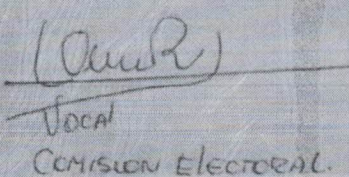 Vocal
Comision Electoral.